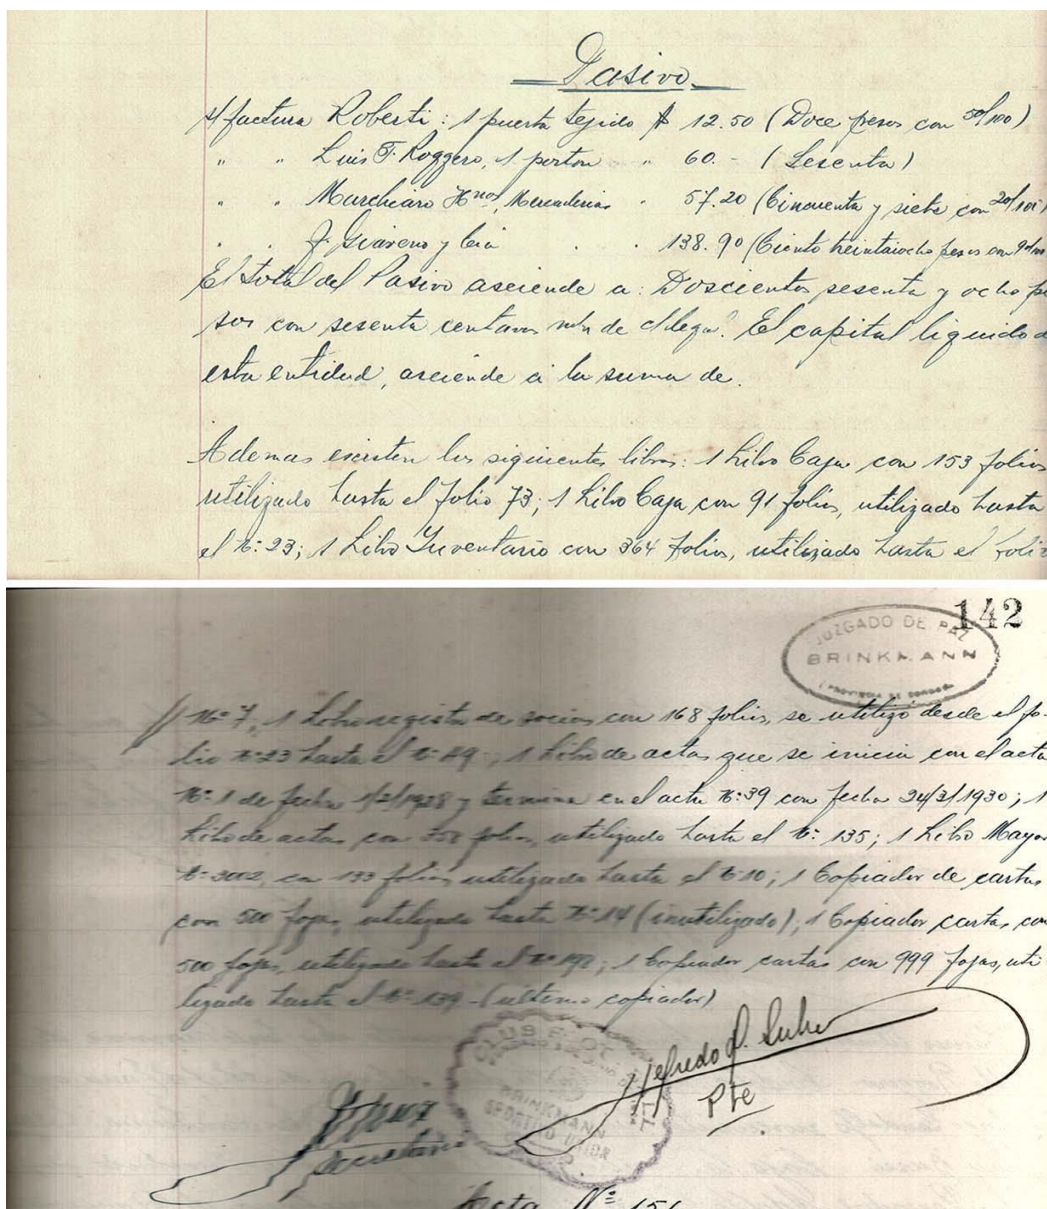 Pasivo
s/ factura Roberti: 1 puerta tejido $ 12.50 (Doce pesos con 50/100)
" " Luis F. Roggero, 1 porton " 60.- (Sesenta)
" " Marchiaro Hnos, Mercaderias " 57.20 (Cincuenta y siete con 20/100)
" " J. y Cia " " 138.90 (Ciento treintaiocho pesos con 90/100
El total del Pasivo asciende a: Doscientos sesenta y ocho pe
sos con sesenta centavos m/n de c/legal. El capital liquido d
esta entidad, asciende a la suma de.
Ademas existen los siguientes libros: 1 Libro Caja con 153 folios
utilizado hasta el folio 73; 1 Libro Caja con 91 folios, utilizado hasta
el Nº: 23; 1 Libro Inventario con 364 folios, utilizado hasta el folio
142
JUZGADO DE PAZ
BRINKMANN
(PROVINCIA DE CORDOBA)
// Nº 7, 1 Libro registro de socios con 168 folios, se utilizó desde el fo-
lio Nº 23 hasta el Nº 49; 1 Libro de actas que se inicia con el acta
Nº: 1 de fecha 1/2/1928 y termina en el acta Nº: 39 con fecha 24/3/1930; 1
Libro de actas con folios, utilizado hasta el Nº: 135; 1 Libro Mayor
Nº 3002, con 133 folios utilizados hasta el Nº 10; 1 Copiador de cartas
con 500 fojas utilizado hasta Nº 14 (inutilizado), 1 Copiador cartas, con
500 fojas, utilizado hasta el Nº; 1 Copiador cartas con 999 fojas, uti
lizado hasta el Nº 139 - (último copiador)
CLUB
BRINKMANN
SPORTIVO UNION
Alfredo
Pte
Secretario
Acta Nº 151